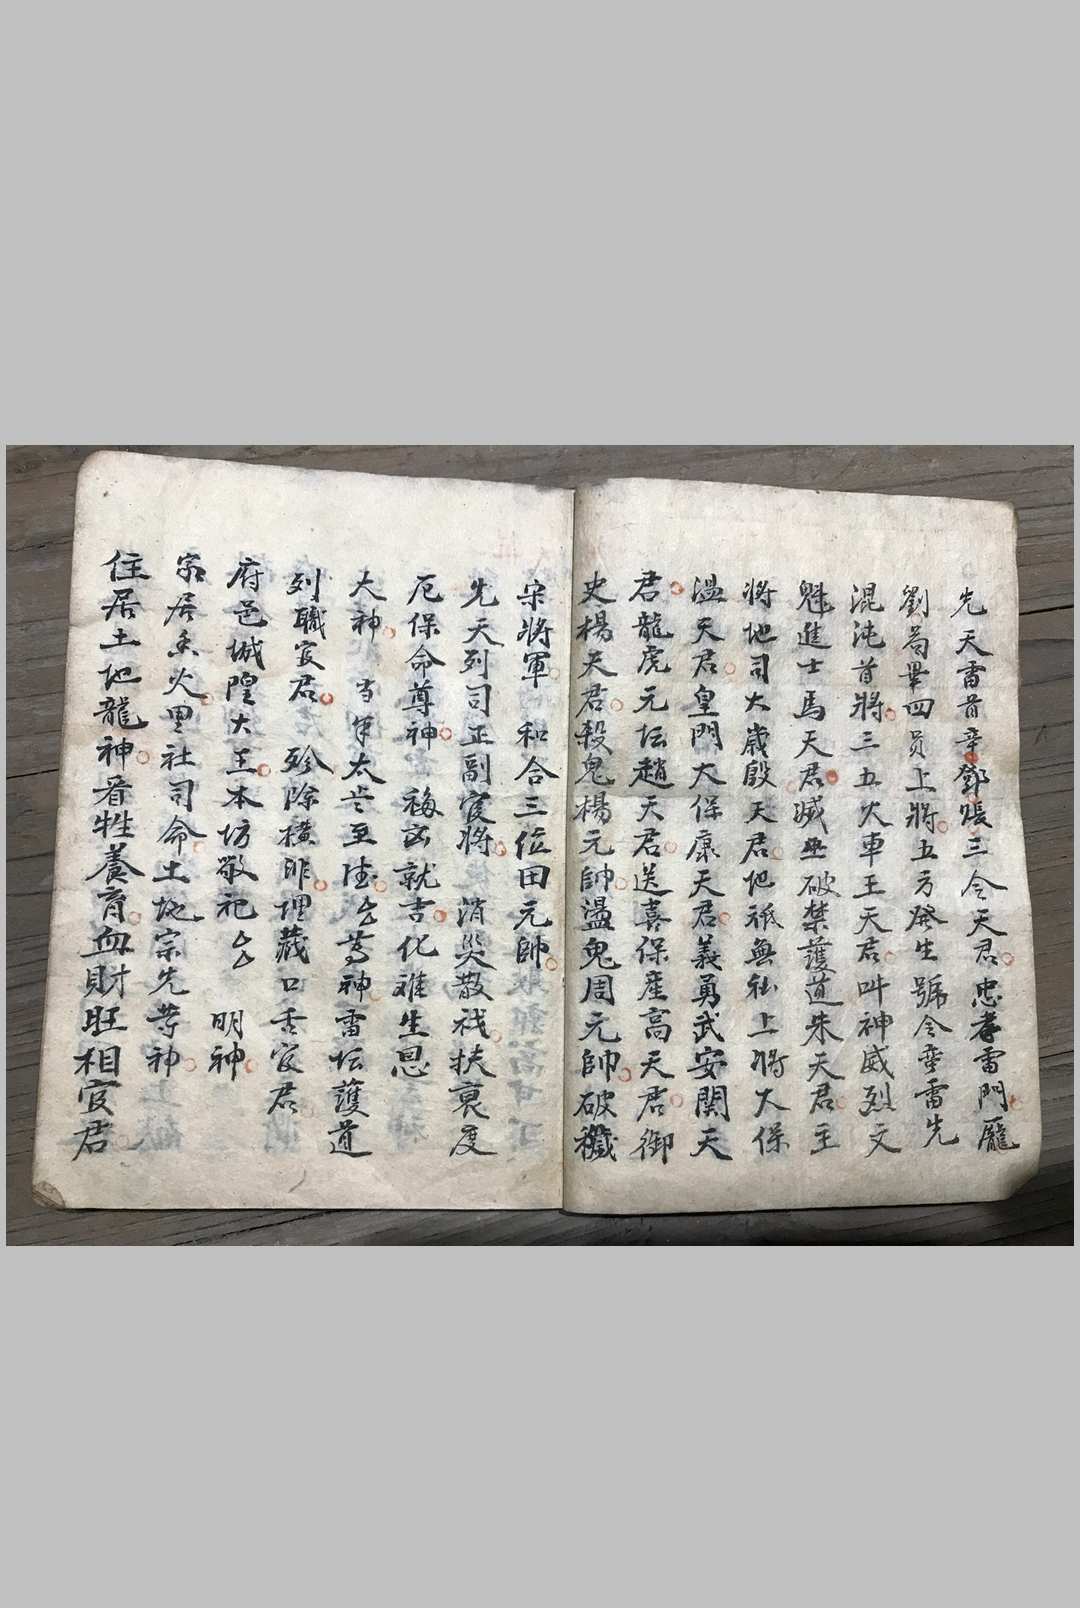 先天雷首辛鄧張三令天君忠孝雷門龐
劉苟畢四員上將五方發生號令蛮雷先
混沌首將三五火車王天君叫神威烈文
魁進士馬天君滅巫破禁護道朱天君主
將地司大歲殷天君地祇無私上將大保
溫天君皇門大保康天君義勇武安関天
君龍虎元坛趙天君送喜保産高天君御
史楊天君殺鬼楊元帥溫鬼周元帥破穢
宋將軍 和合三位田元帥
先天列司正副官將 消災散禍扶衰度
厄保命尊神 移凶就吉化难生恩
大神 当年太岁至德 尊神雷坛護道
列職官君 殄除横非埋藏口舌官君
府邑城隍大王本坊敬祀 明神
家居香火里社司命土地宗先等神
住居土地龍神看牲養育血財旺相官君